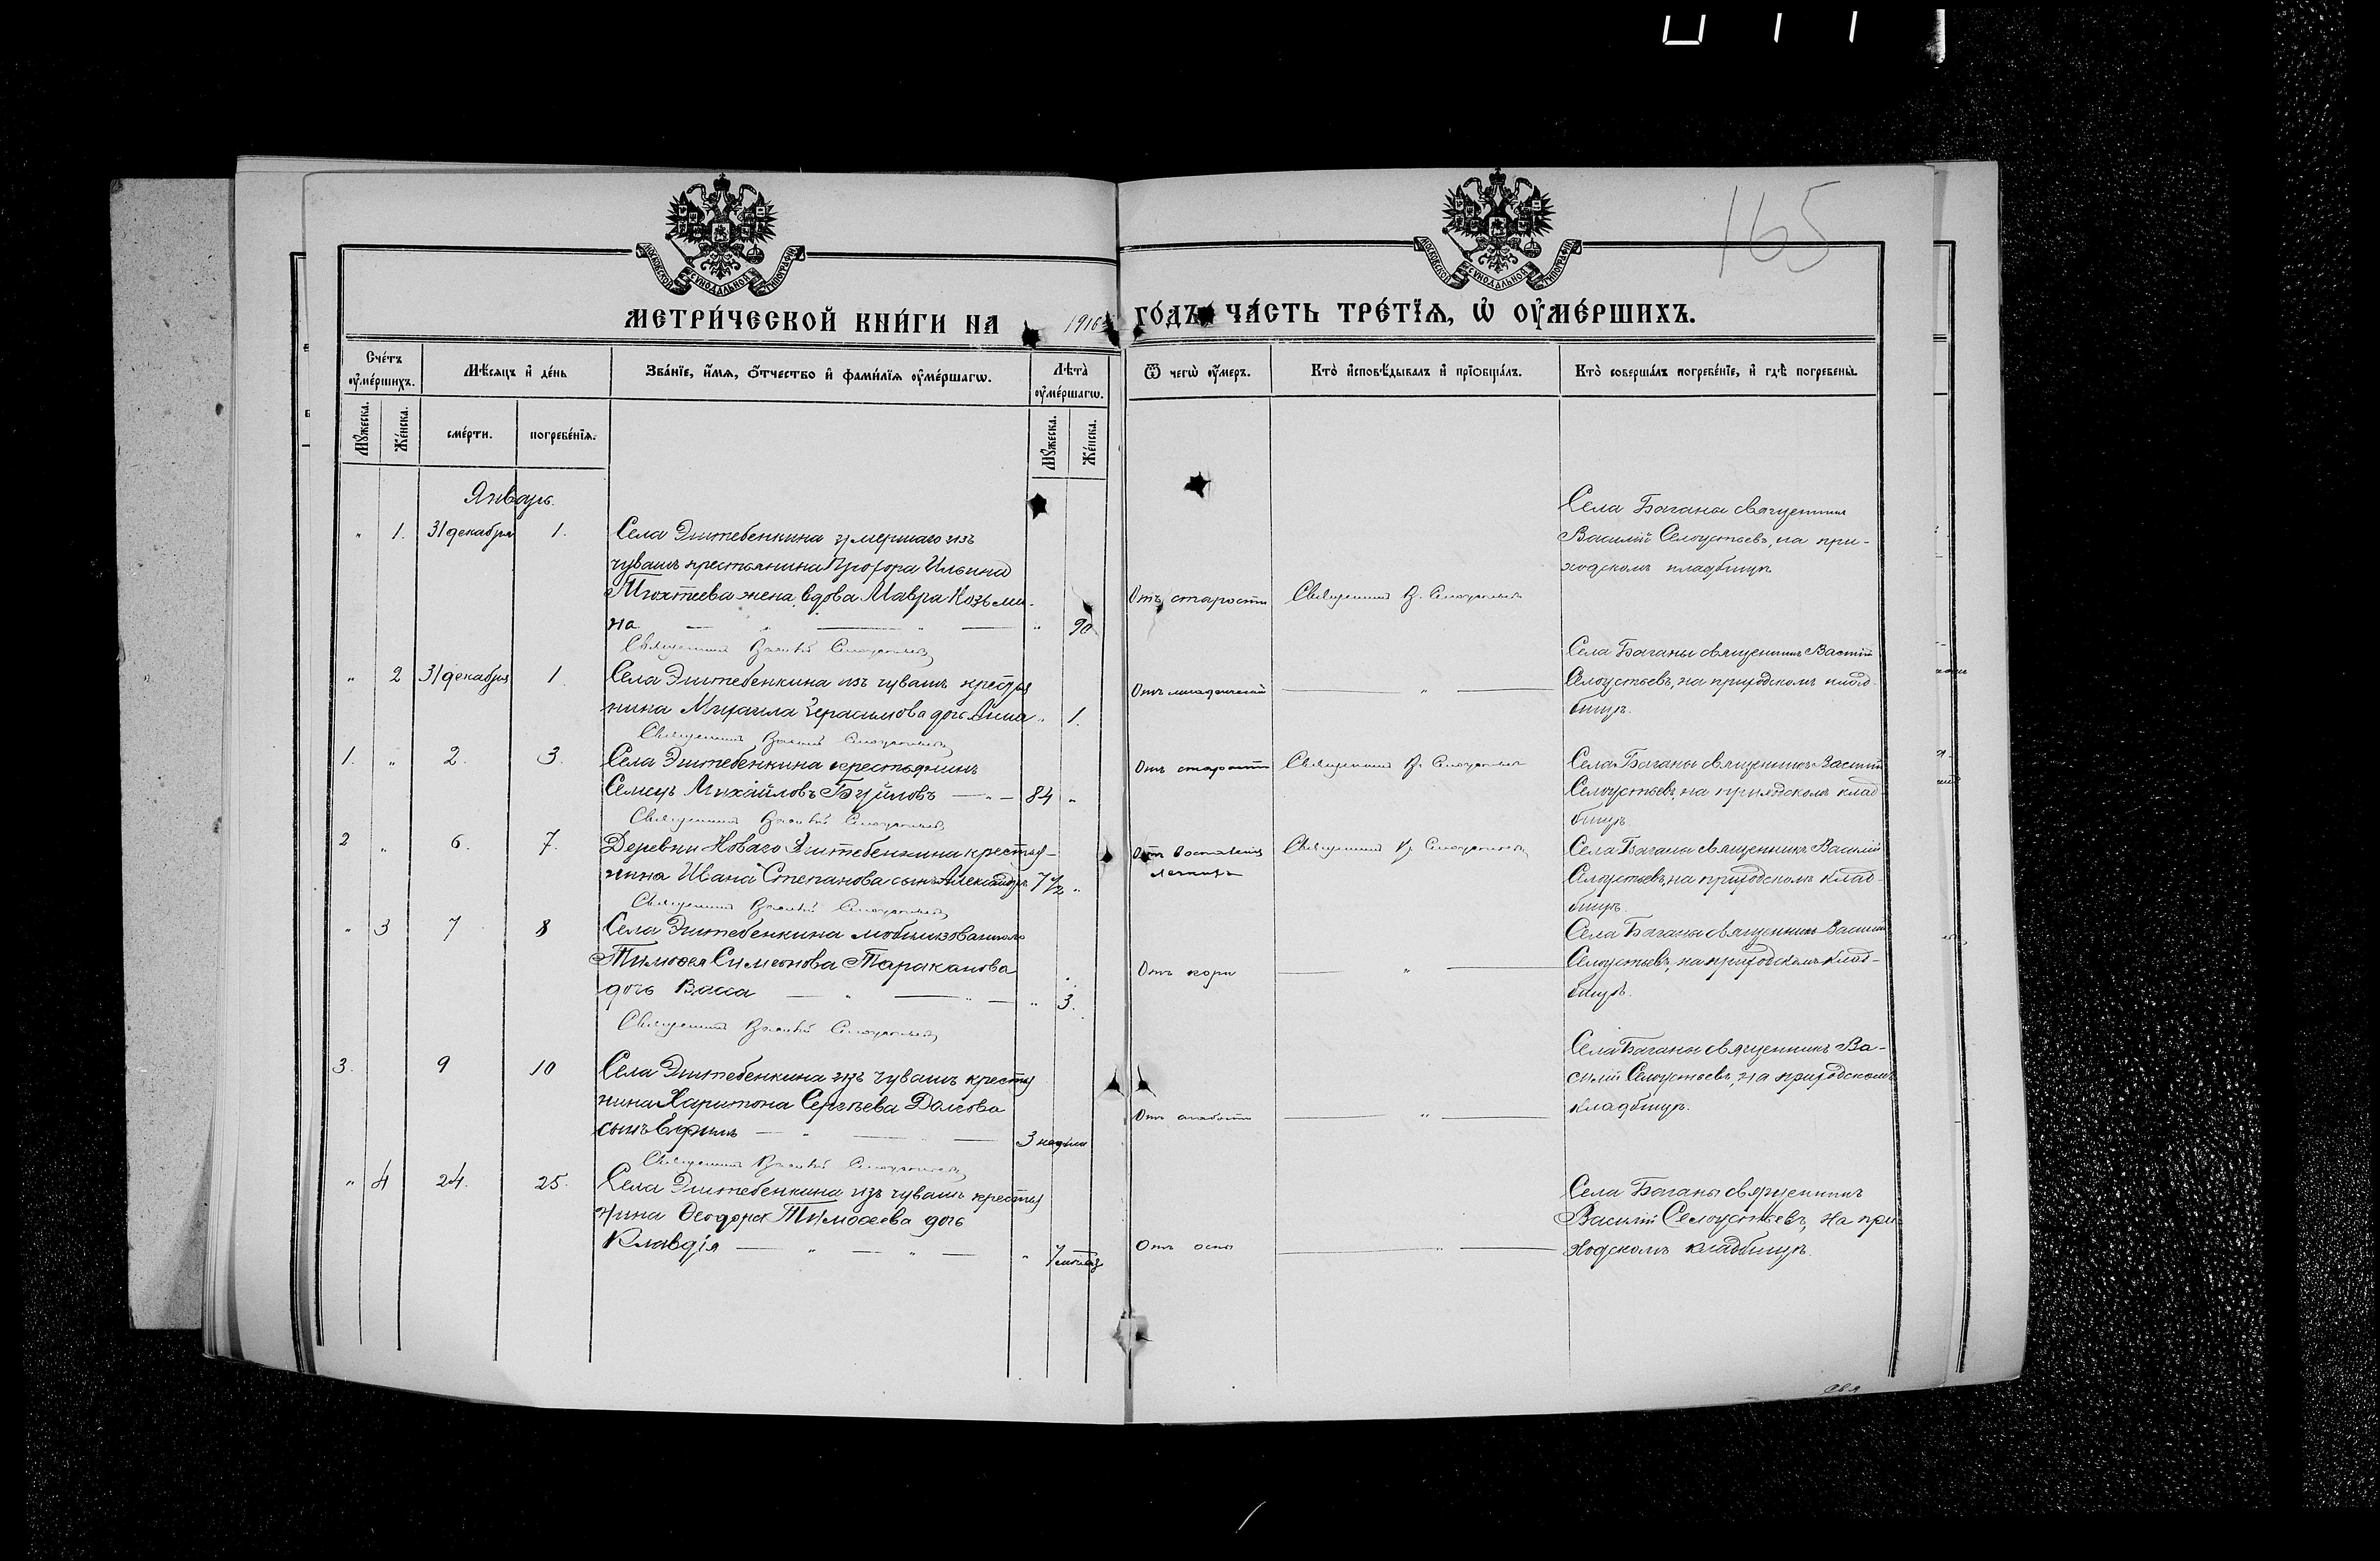 165
МОСКОВСКОЙ СѴНОДАЛЬНОЙ ТИПОГРАФІИ
МОСКОВСКОЙ СѴНОДАЛЬНОЙ ТИПОГРАФІИ
МЕТРИ́ЧЕСКОЙ КНИ́ГИ НА 1916 ГО́ДЪ ЧА́СТЬ ТРЕ́ТЇѦ, Ѡ҆ ОУ҆МЕ́РШИХЪ.
Сче́тъ оу҆ме́ршихъ.
Мѣ́сяцъ и҆ де́нь
Зва́нїе, и҆́мѧ, ѻ҆́тчество и҆ фами́лїѧ оу҆ме́ршагѡ.
Лѣ́та оу҆ме́ршагѡ.
Ѿ чегѡ̀ оу҆́меръ.
Кто̀ и҆сповѣ́дывалъ и҆ прїѡбща́лъ.
Кто̀ соверша́лъ погребе́нїе, и҆ гдѣ̀ погребены̀.
Мꙋ́жеска.
Же́нска.
сме́рти.
погребе́нїѧ.
Мꙋ́жеска.
Же́нска.
Январь.
" 1. 31 декабря 1.
Села Эштебенкина умершаго изъ
чувашъ крестьянина Прохора Ильина
Тюхтеева жена, вдова Мавра Козьми-
на " 90
Отъ старости
Священникъ В. Селоустьевъ
Села Баганы священникъ
Василій Селоустьевъ, на при-
ходскомъ кладбищѣ
Священникъ Василій Селоустьевъ
" 2 31 декабря 1
Села Эштебенкина изъ чувашъ крестья
нина Михаила Герасимова дочь Анна " 1.
Отъ младенческой
Села Баганы священникъ Василій
Селоустьевъ, на приходскомъ клад-
бищѣ.
Священникъ Василій Селоустьевъ
1. " 2. 3.
Села Эштебенкина крестьянинъ
Михайловъ Буйловъ 84 "
Отъ старости
Священникъ В. Селоустьевъ
Села Баганы священникъ Василій
Селоустьевъ, на приходскомъ клад
бищѣ.
Священникъ Василій Селоустьевъ
2 " 6. 7.
Деревни Новаго Эштебенкина крестья-
нина Ивана Степанова сынъ Александръ 7 1/2 "
Отъ воспаленія
легкихъ
Священникъ В. Селоустьевъ
Села Баганы священникъ Василій
Селоустьевъ, на приходскомъ клад-
бищѣ.
Священникъ Василій Селоустьевъ
" 3 7 8
Села Эштебенкина мобилизованнаго
Тимоѳея Симеонова Тараканова
дочь Васса " 3.
Отъ кори
Села Баганы священникъ Василій
Селоустьевъ, на приходскомъ клад-
бищѣ.
Священникъ Василій Селоустьевъ
3. 9 10
Села Эштебенкина изъ чувашъ крестья
нина Харитона Сергѣева Долгова
сынъ Ефимъ 3 недѣли
Отъ слабости
Села Баганы священникъ Ва-
силій Селоустьевъ, на приходскомъ
кладбищѣ.
Священникъ Василій Селоустьевъ
" 4 24. 25.
Села Эштебенкина изъ чувашъ крестья
нина Ѳеодора Тимоѳеева дочь
Клавдія "
Отъ оспы
Села Баганы священникъ
Василій Селоустьевъ, на при-
ходскомъ кладбищѣ.
Свя